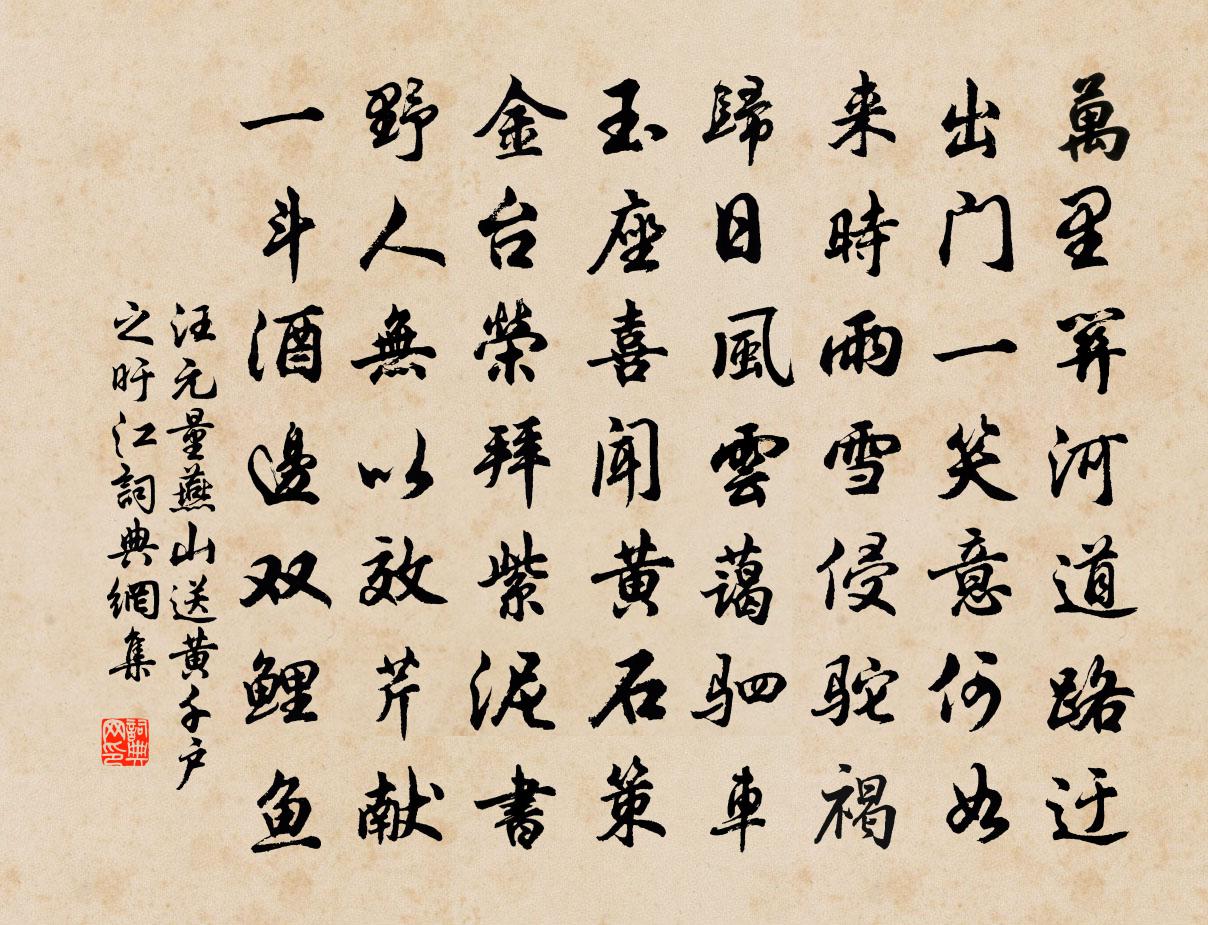 萬里關河道路迂
出门一笑意何如
来時雨雪侵驼褐
歸日風雲藹驷車
玉座喜闻黄石策
金台榮拜紫泥書
野人無以效芹献
一斗酒邊双鲤鱼
汪元量燕山送黄千户
之旴江詞典網集
詞典网印